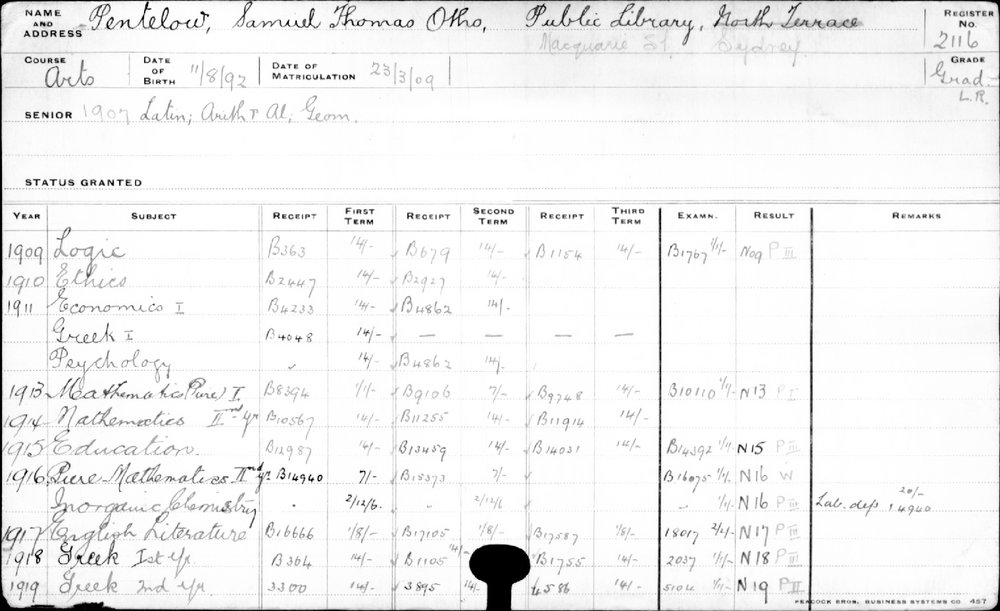 NAME AND ADDRESS Pentelow, Samuel Thomas Otho, Public Library, North Terrace REGISTER No. 2116
Macquarie St. Sydney
COURSE Arts DATE OF BIRTH 11/8/92 DATE OF MATRICULATION 23/3/09 GRADE Grad.
L.R.
SENIOR 1907 Latin; Arith & Al; Geom.
STATUS GRANTED
YEAR SUBJECT RECEIPT FIRST TERM RECEIPT SECOND TERM RECEIPT THIRD TERM EXAMN. RESULT REMARKS
1909 Logic B363 14/- B679 14/- B1154 14/- B1767 1/1/- N09 P III
1910 Ethics B2447 14/- B2927 14/-
1911 Economics I B4233 14/- B4862 14/-
Greek I B4048 14/- — — — —
Psychology 14/- B4862 14/-
1913 Mathematics (Pure) I B8394 1/1/- B9106 7/- B9748 14/- B10110 1/1/- N13 P I
1914 Mathematics IInd yr B10567 14/- B11255 14/- B11914 14/-
1915 Education. B12987 14/- B13459 14/- B14031 14/- B14392 1/1/- N15 P III
1916 Pure Mathematics IInd yr B14940 7/- B15373 7/- B16075 1/1/- N16 W
Inorganic Chemistry " 2/12/6. " 2/12/6 " 1/1/- N16 P III Lab. dep. 20/- 14940
1917 English Literature B16666 1/8/- B17105 1/8/- B17587 1/8/- 18017 2/2/- N17 P III
1918 Greek 1st yr. B364 14/- B1105 14/- B1755 14/- 2037 1/1/- N18 P III
1919 Greek 2nd yr. 3300 14/- 3895 14/- 4586 14/- 5104 1/1/- N19 P II
PEACOCK BROS. BUSINESS SYSTEMS CO 457